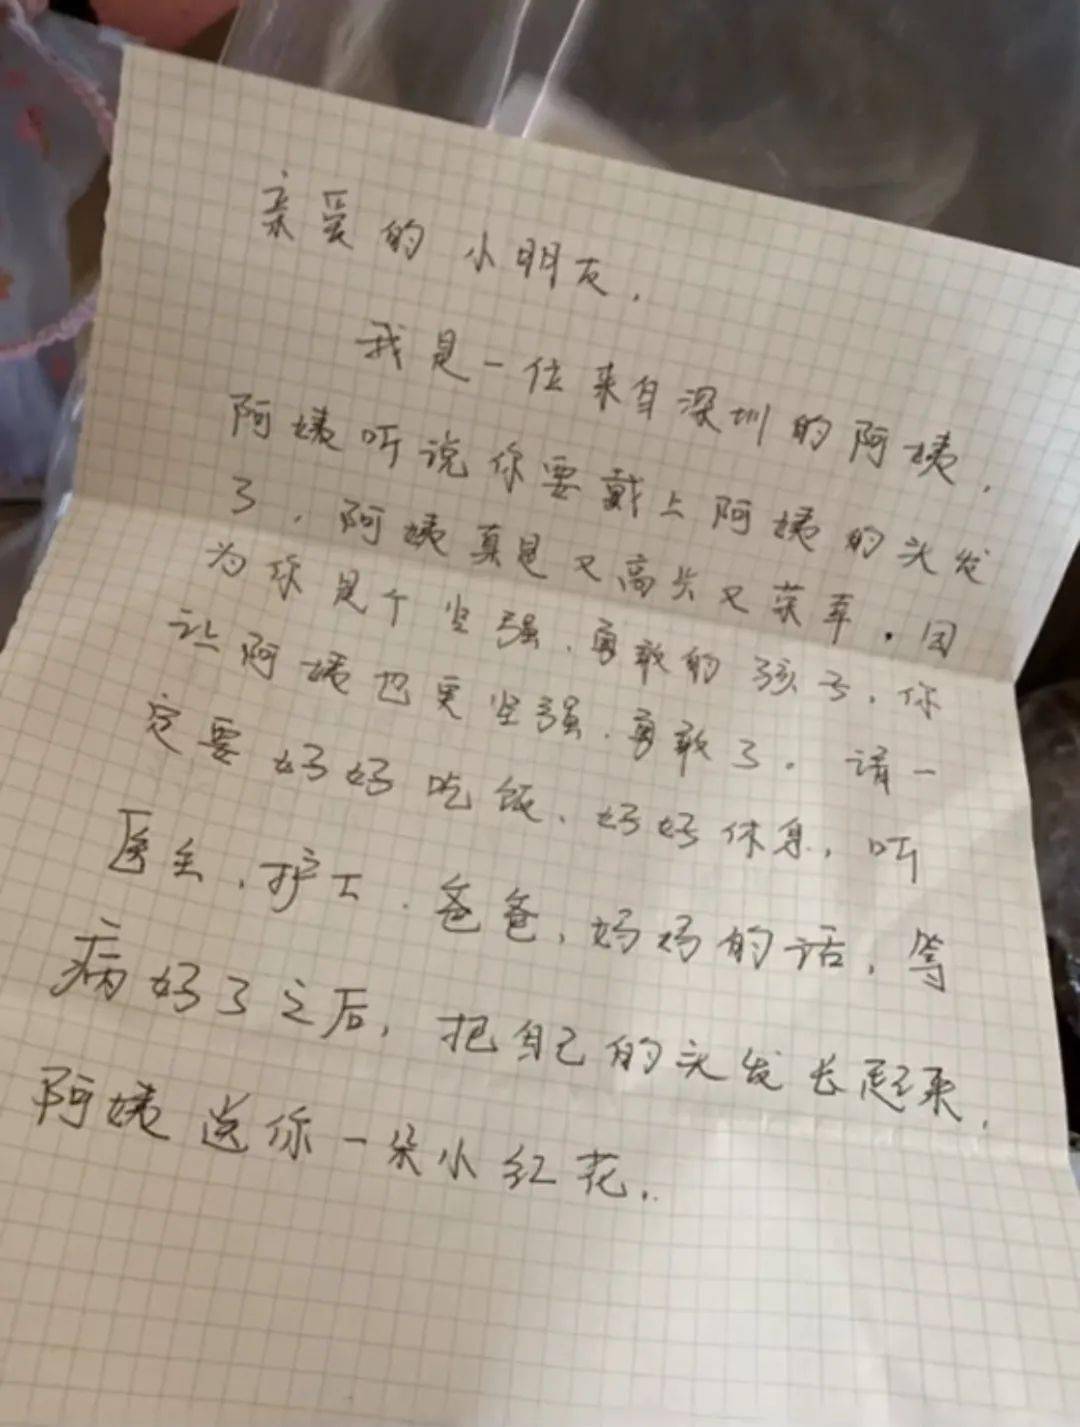 亲爱的小朋友,
我是一位来自深圳的阿姨,
阿姨听说你要戴上阿姨的头发
了,阿姨真是又高兴又荣幸。因
为你是个坚强、勇敢的孩子,你
让阿姨也更坚强、勇敢了。请一
定要好好吃饭、好好休息,听
医生、护士、爸爸、妈妈的话,等
病好了之后,把自己的头发长起来,
阿姨送你一朵小红花,.